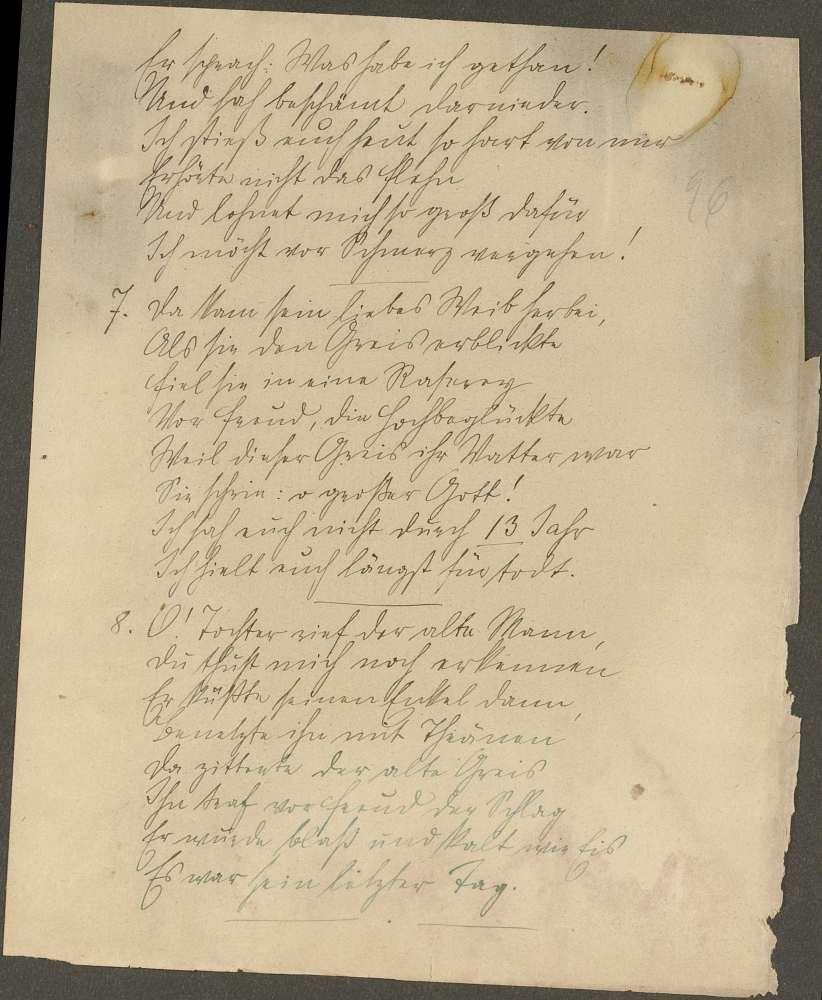 Er sprach: Was habe ich gethan!
Und sah beschämt darnieder.
Ich stieß euch heut so hart von mir
Erhörte nicht das Flehn
Und lohnet mich so groß dafür
Ich möcht vor Schmerz vergehen!
96
7. Da kam sein liebes Weib herbei,
Als sie den Greis erblickte
Fiel sie in eine Raserey
Vor Freud, die Hochbeglückte
Weil dieser Greis ihr Vatter war
Sie schrie: o großer Gott!
Ich sah euch nicht durch 13 Jahr
Ich hielt euch längst für todt.
8. O! Tochter rief der alte Mann,
Du thust mich noch erkennen
Er küßte seinen Enkel dann,
Benetzte ihn mit Thränen
Da zitterte der alte Greis
Ihn traf vor Freud der Schlag
Er wurde blaß und kalt wie Eis
Es war sein letzter Tag.